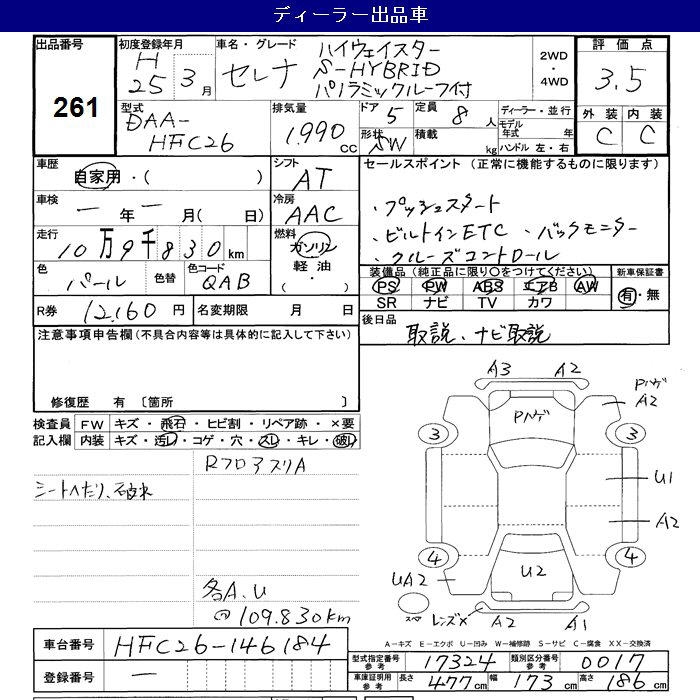 ディーラー出品車
出品番号
261
初度登録年月
H
25 3月
車名・グレード
セレナ
ハイウェイスター
S-HYBRID
パノラミックルーフ付
2WD
・
4WD
評価点
3.5
外装 内装
C C
型式
DAA-
HFC26
排気量
1,990 cc
ドア 5
定員 8人
形状 SW
積載 kg
ディーラー・並行
モデル年式 年
ハンドル 左・右
車歴
自家用・( )
シフト
AT
車検
一年一月( 日)
冷房
AAC
走行
10万9千830km
燃料
ガソリン
軽油・
色
パール
色替
色コード
QAB
R券 12,160円
名変期限 月 日
セールスポイント(正常に機能するものに限ります)
・プッシュスタート
・ビルトインETC ・バックモニター
・クルーズコントロール
装備品(純正品に限り○をつけてください)
PS PW ABS エアB AW
SR ナビ TV カワ
新車保証書
有・無
後日品
取説、ナビ取説
注意事項申告欄(不具合内容等は具体的に記入して下さい)
修復歴 有〔箇所 〕
検査員記入欄
FW キズ・飛石・ヒビ割・リペア跡・×要
内装 キズ・汚レ・コゲ・穴・スレ・キレ・破レ
RフロアスリA
シートへたり、
各A.U
@109.830km
A3 A2
Pハゲ
A2
Pハゲ
3 3
U1
A2
4 4
UA2
U2
スペア
レンズ× A2 A1
A-キズ E-エクボ U-凹み W-補修跡 S-サビ C-腐食 XX-交換済
車台番号 HFC26-146184
登録番号 一
型式指定番号参考 17324
類別区分番号参考 0017
車庫証明用参考 長さ 477cm 幅 173cm 高さ 186cm